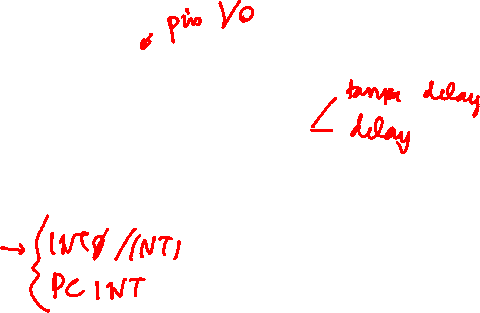 pin I/O
tanpa delay
delay
INT0/INT1
PCINT